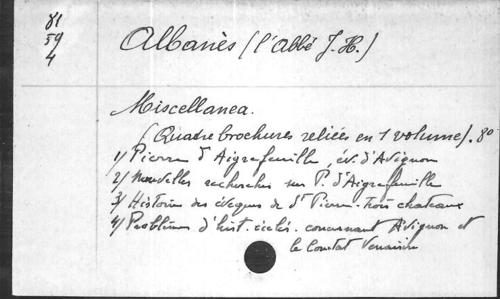 81
59
4
Albanès (l'abbé J. H.)
Miscellanea.
(Quatre brochures reliées en 1 volume). 8°
1/ Pierre d'Aigrefeuille, év. d'Avignon
2/ Nouvelles recherches sur P. d'Aigrefeuille
3/ Histoire des évêques de St Pierre-trois chateaux
4/ Problèmes d'hist. eclés. concernant Avignon et
le Comtat Venaissin